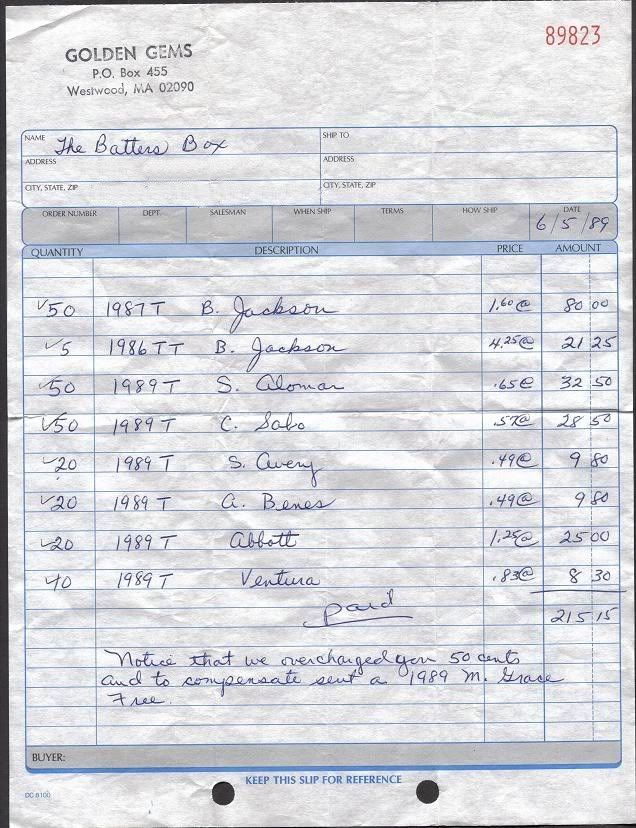 89823
GOLDEN GEMS
P.O. Box 455
Westwood, MA 02090
NAME The Batters Box SHIP TO
ADDRESS ADDRESS
CITY, STATE, ZIP CITY, STATE, ZIP
ORDER NUMBER DEPT. SALESMAN WHEN SHIP TERMS HOW SHIP DATE 6/5/89
QUANTITY DESCRIPTION PRICE AMOUNT
✓50 1987 T B. Jackson 1.60@ 80 00
✓5 1986 TT B. Jackson 4.25@ 21 25
✓50 1989 T S. Alomar .65@ 32 50
✓50 1989 T C. Sabo .57@ 28 50
✓20 1989 T S. Avery .49@ 9 80
✓20 1989 T A. Benes .49@ 9 80
✓20 1989 T Abbott 1.25@ 25 00
✓10 1989 T Ventura .83@ 8 30
paid 215 15
Notice that we overcharged you 50 cents
and to compensate sent a 1989 M. Grace
Free.
BUYER:
KEEP THIS SLIP FOR REFERENCE
DC 8100